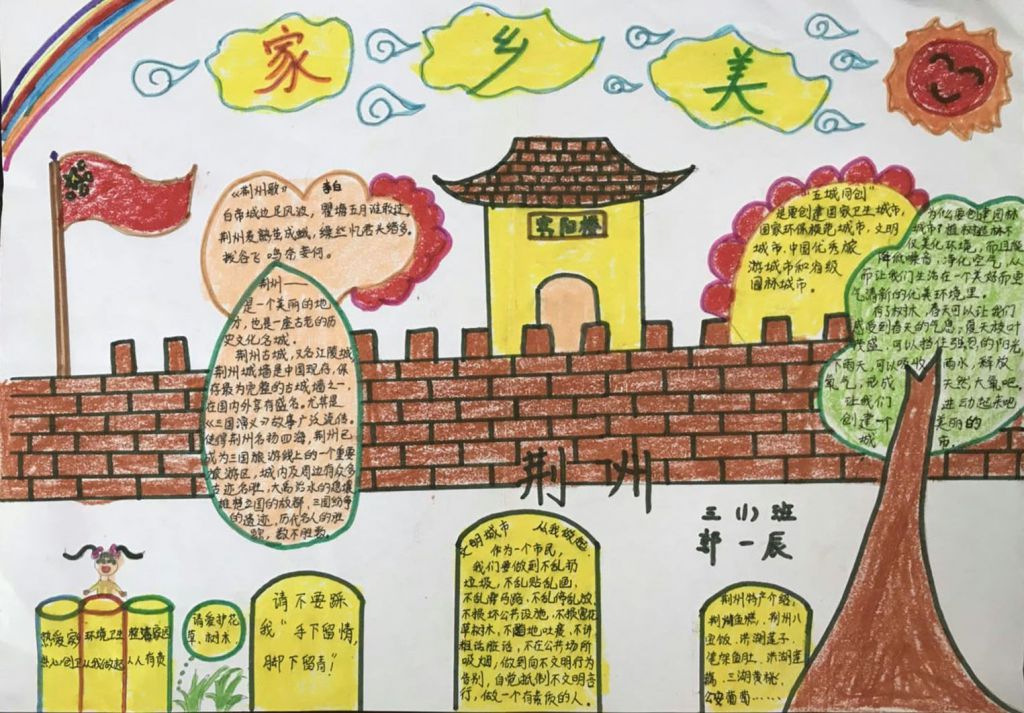 家 乡 美
《荆州歌》 李白
白帝城边足风波，瞿塘五月谁敢过。
荆州麦熟茧成蛾，缲丝忆君头绪多。
拨谷飞鸣奈妾何。
荆州——
是一个美丽的地
方，也是一座古老的历
史文化名城。
荆州古城，又名江陵城，
荆州城墙是中国现存，保
存最为完整的古城墙之一，
在国内外享有盛名。尤其是
《三国演义》故事广泛流传。
使得荆州名扬四海，荆州已
成为三国旅游线上的一个重要
旅游区，城内及周边有众多
古迹名胜，大禹治水的遗
楚国的故都，三国纷争
的遗迹，历代名人的胜
踪，数不胜数。
宾阳楼
"五城同创"
是要创建国家卫生城市，
国家环保模范城市，文明
城市，中国优秀旅
游城市和省级
园林城市。
为什么要创建园林
城市？植树造林不
仅美化环境，而且能
降低噪音，净化空气，从
而让我们生活在一个美好而空
气清新的优美环境里。
有了树木，春天可以让我们
感受到春天的气息；夏天枝叶
茂盛，可以挡住强烈的阳光，
下雨天，可以吸收 雨水，释放
氧气，形成 天然大氧吧。
让我们 进动起来吧
创建一个 美丽的
城 市
荆 州
三（1）班
郭一辰
热爱家
热心创卫
环境卫生
从我做起
整洁家园
人人有责
请爱护花
草、树木
请不要踩
我"手下留情，
脚下留青！"
文明城市 从我做起
作为一个市民，
我们要做到不乱扔
垃圾，不乱贴乱画，
不乱穿马路，不乱停乱放
不损坏公共设施，不损害花
草树木，不随地吐痰，不讲
粗话脏话，不在公共场所
吸烟，做到向不文明行为
告别，自觉抵制不文明言
行，做一个有素质的人。
荆州特产介绍，
荆州鱼糕，荆州八
宝饭，洪湖莲子，
笔架鱼肚，洪湖莲
藕，三湖黄桃，
公安葡萄……